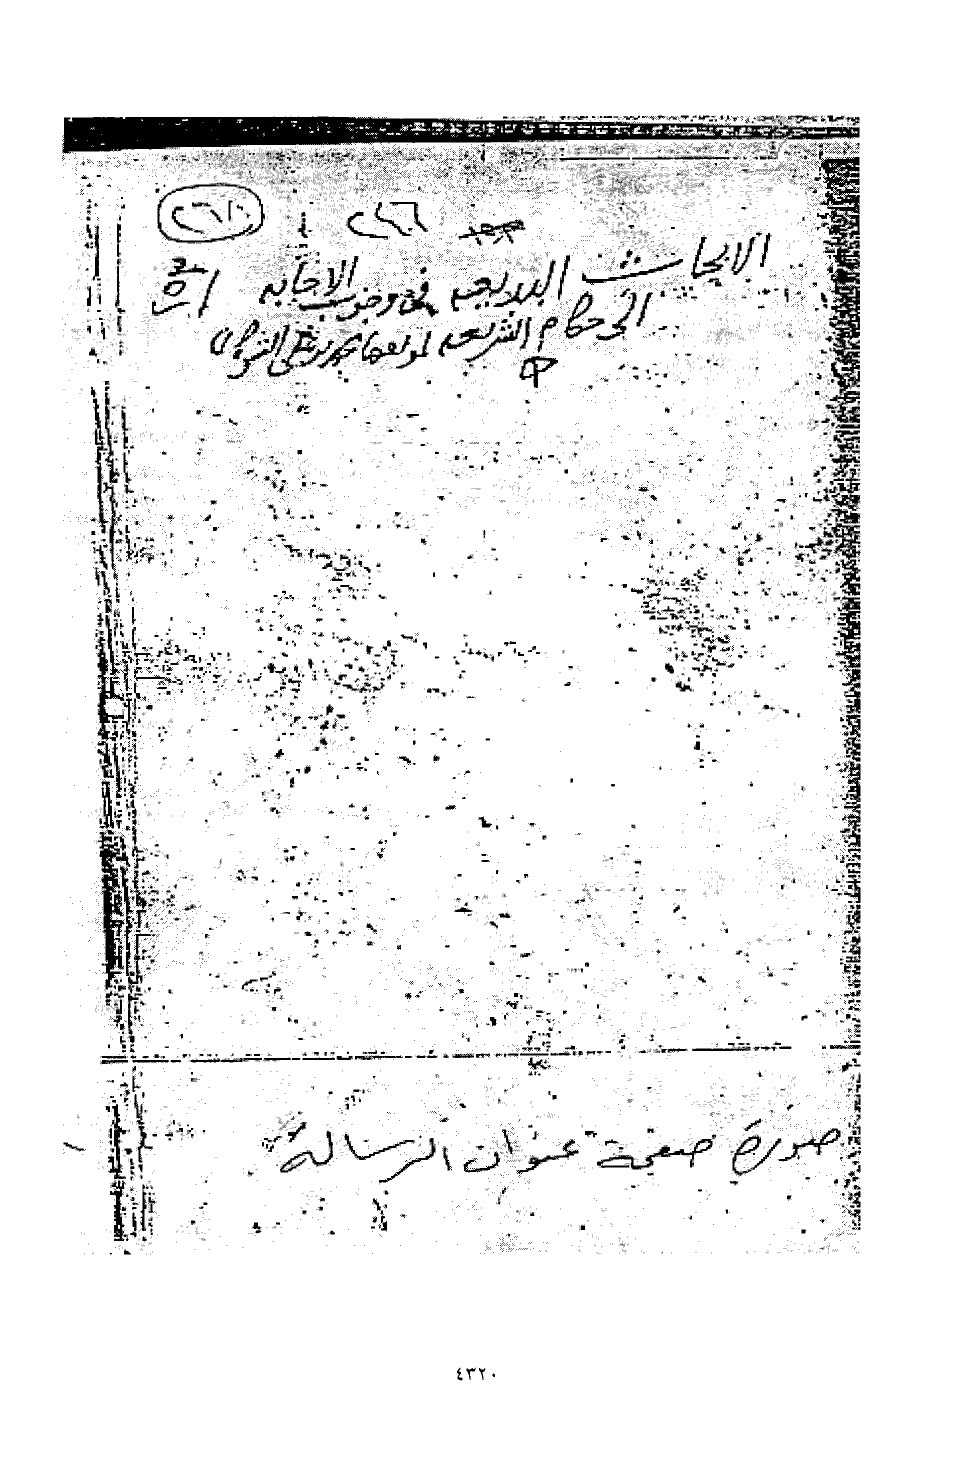 الابحاث البديعه في وجوب الاجابه
الى حكام الشريعه لمولعها محمد بن علي الشوكاني
صورة صفحة عنوان الرسالة
٤٣٢٠